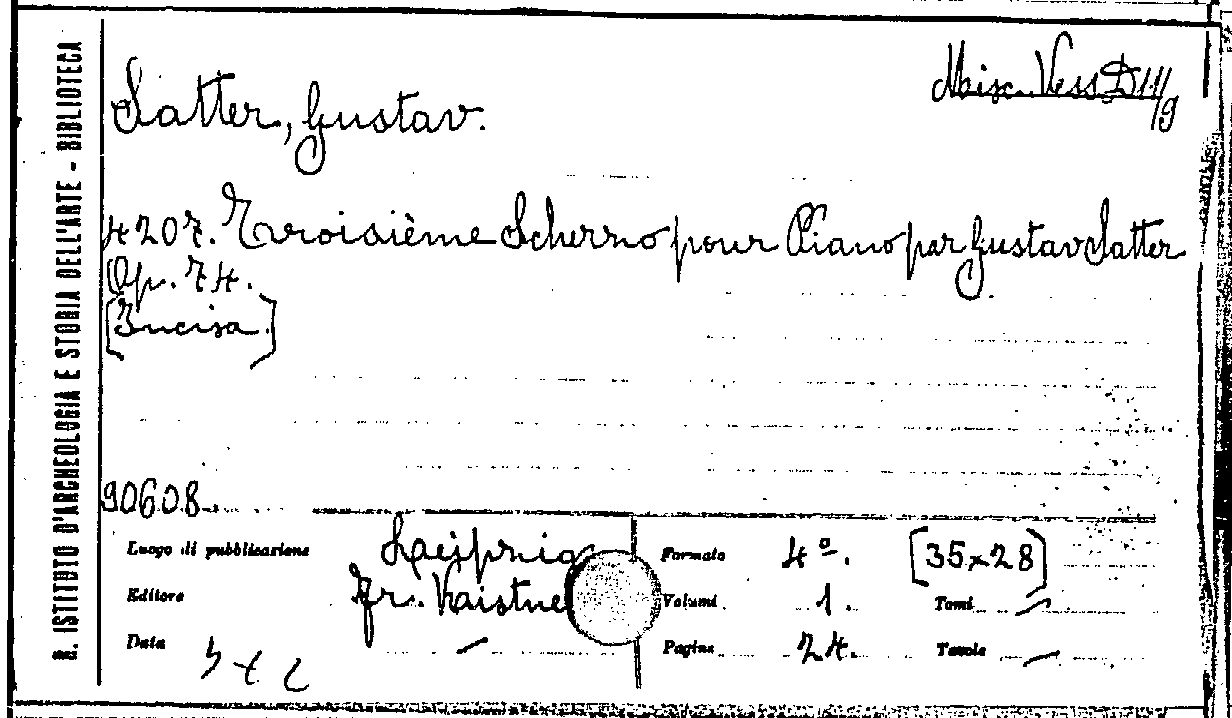 R. ISTITUTO D'ARCHEOLOGIA E STORIA DELL'ARTE - BIBLIOTECA
Misc. Vess. D 111/9
Satter, Gustav.
4207. Troisième Scherzo pour Piano par Gustav Satter
Op. 74.
[Incisa.]
90608.
Luogo di pubblicazione Leipzig Formato 4º. [35x28]
Editore Fr. Kistne Volumi 1. Tomi —
Data — Pagine 24. Tavole —